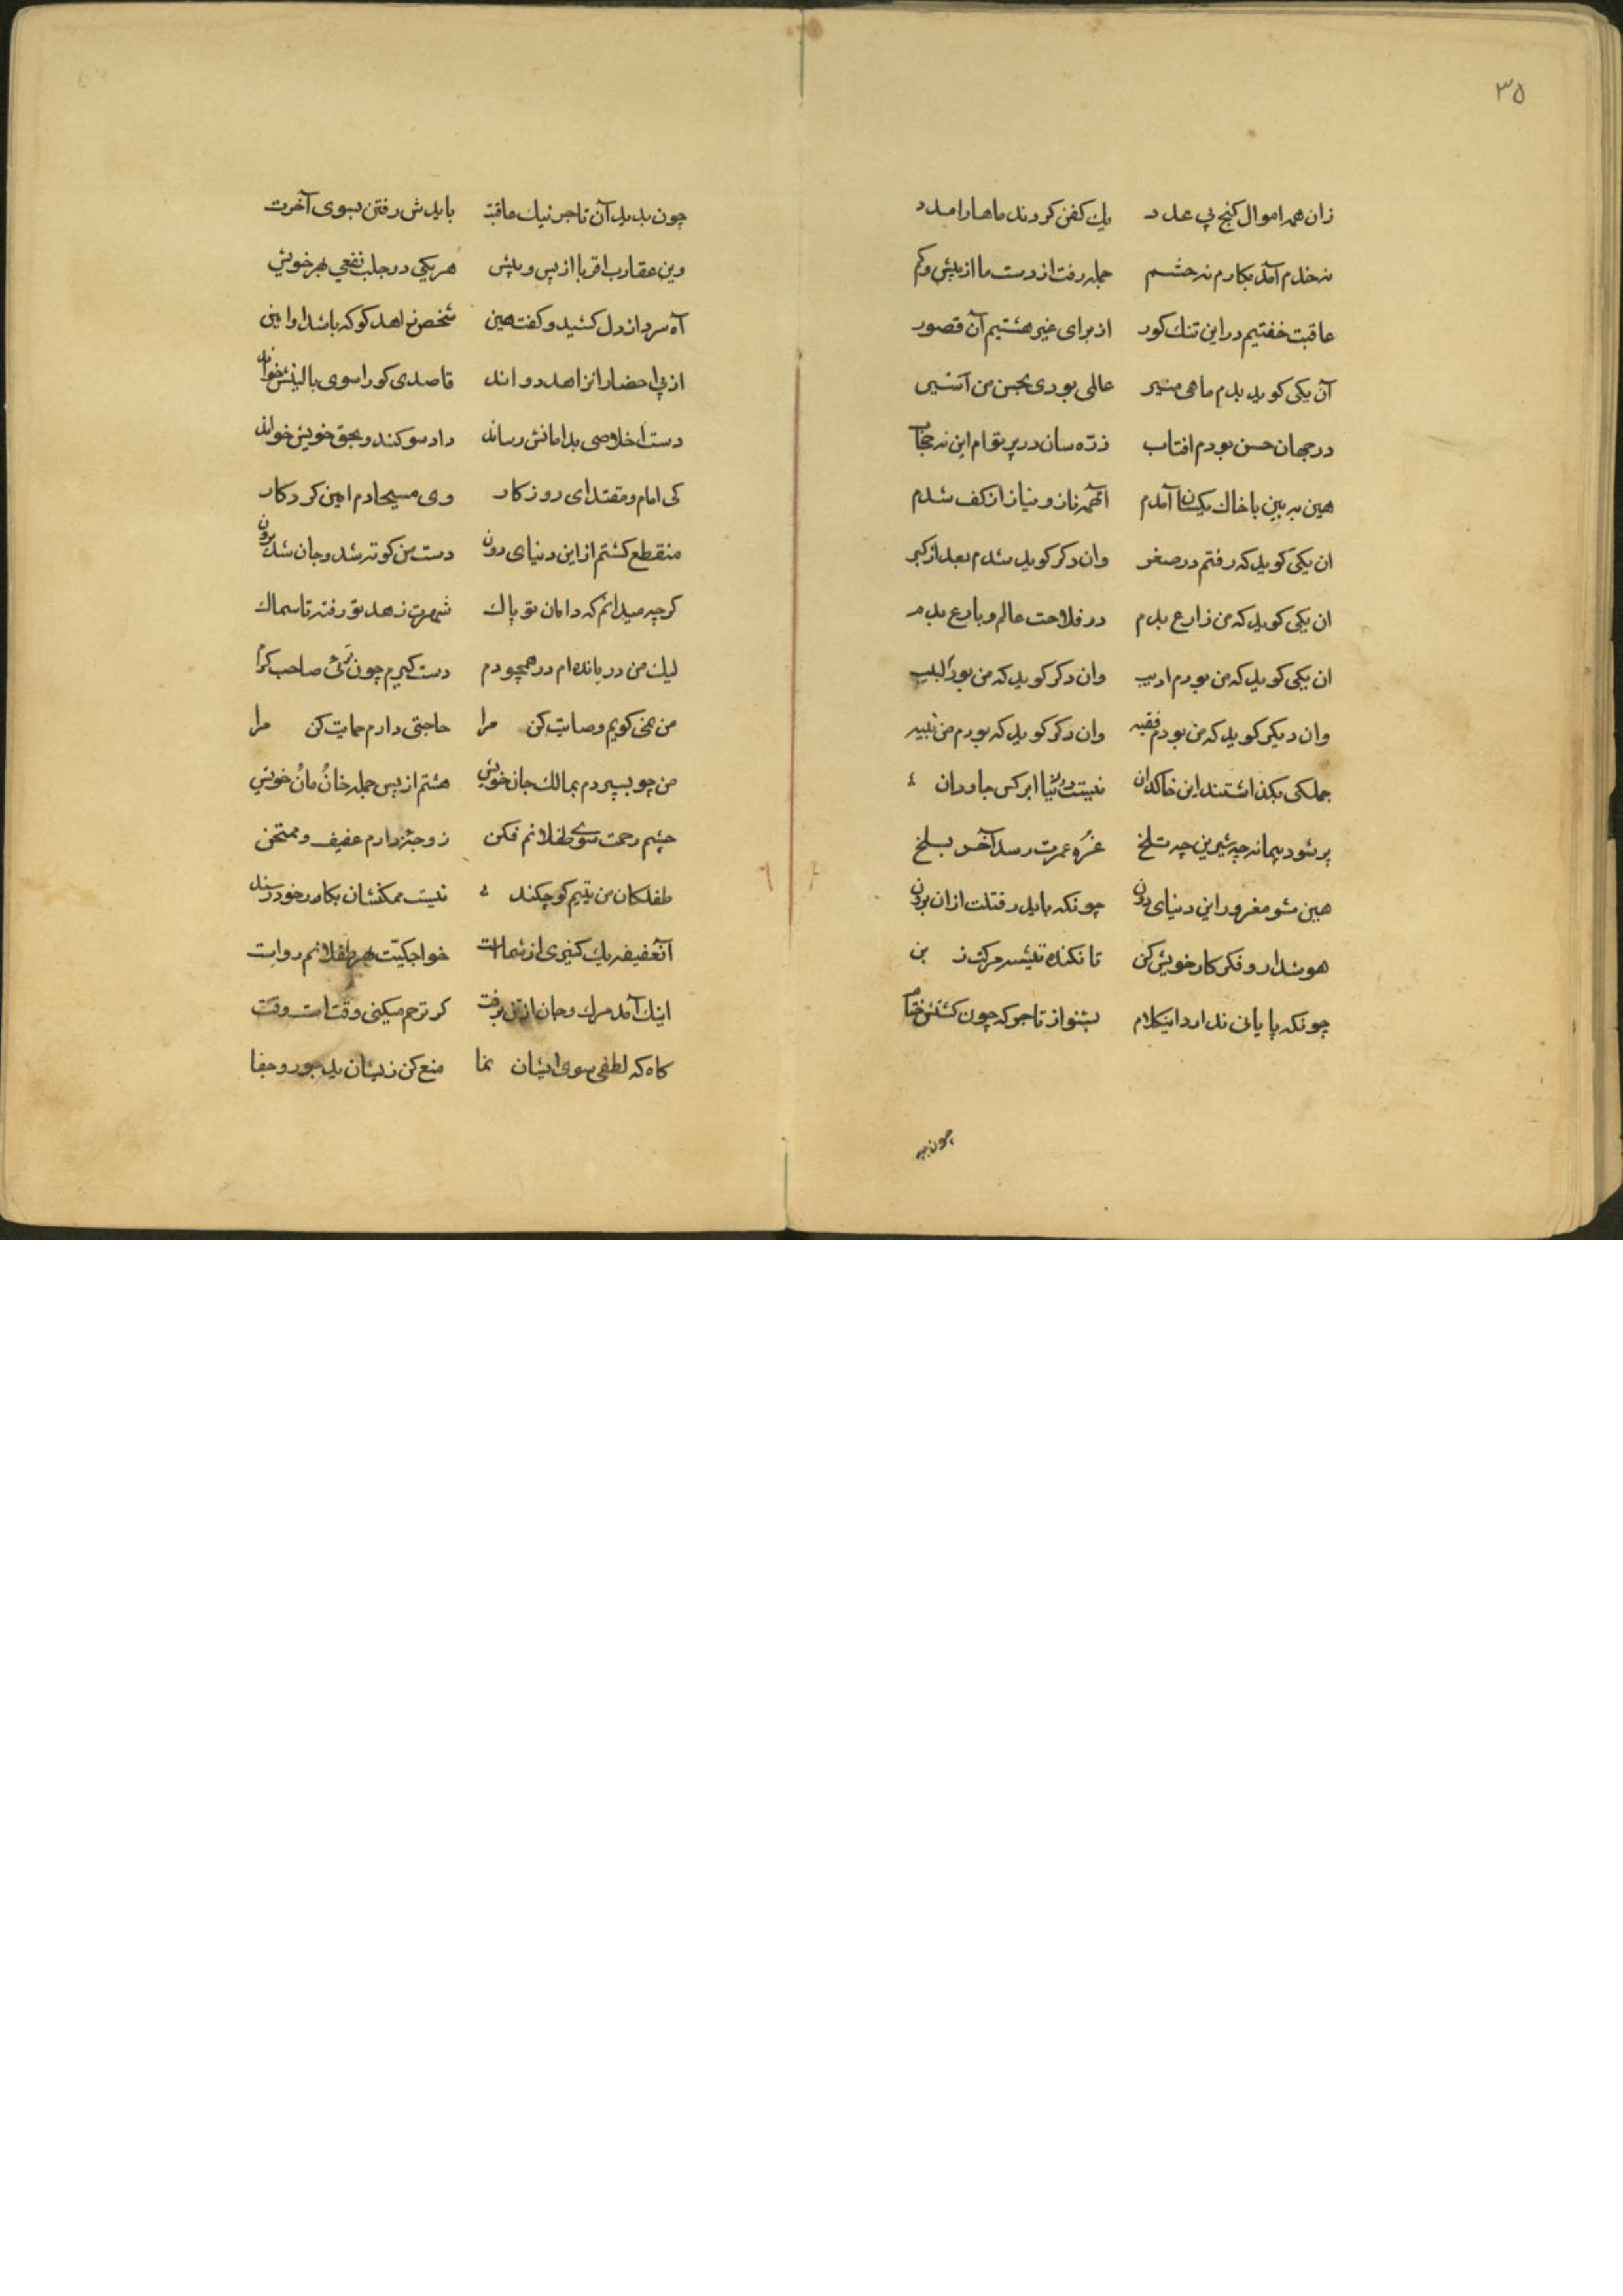 ۳۵
زان همه اموال کنج بی عدد یک کفن کردند ماها را مدد
نه خدم آمد بکارم نه حشم جمله رفت از دست ما از بیش و کم
عاقبت خفتیم در این تنک کور از برای غیر هشتیم آن قصور
آن یکی کوید بدم ماهی منیر عالمی بودی بحسن من آسیر
در جهان حسن بودم افتاب ذرّه سان در پرتوام این نه حجاب
هین به بین با خاک یکسان آمدم آنهمه ناز و نیاز از کف شدم
ان یکی کوید که رفتم در صغر وان دکر کوید شدم بعد از کبر
ان یکی کوید که من زارع بدم در فلاحت عالم و بارع بدم
ان یکی کوید که من بودم ادیب وان دکر کوید که من بودم لبیب
وان دیکر کوید که من بودم فقیه وان دکر کوید که بودم من نبیه
جملکی بکذاشتند این خاکدان نیست دنیا ابر کس جاودان
پر شود پیمانه چه شیرین چه تلخ غرّه عمرت رسد آخر بسلخ
هین مشو مغرور این دنیای دون چونکه باید رفتنت ازان برون
هوشدار و فکر کار خویش کن تا نکنده تیشه مرکت ز بن
چونکه پایانی ندارد اینکلام بشنو از تاجر که چون کشتش ختام
چون بدید
چون بدید آن تاجر نیک عاقبت بایدش رفتن بسوی آخرت
وین عقارب اقربا از پس و پیش هر یکی در جلب نفعی بهر خویش
آه سرد از دل کشید و کفت هین شخص زاهد کو که باشد او امین
از پی احضار انزاهد دواند قاصدی کو را سوی بالینش خواند
دست اخلاصی بدامانش رساند داد سوکند و بحق خویش خواند
کی امام و مقتدای روزکار وی مسیحا دم امین کردکار
منقطع کشتم از این دنیای دون دست من کوته شد و جان شد برون
کرچه میدانم که دامان تو پاک شهرت زهد تو رفته تا سماک
لیک من درمانده ام در همچو دم دست کیرم چون توئی صاحب کرم
من همی کویم وصایت کن مرا حاجتی دارم حمایت کن مرا
من چو بسپردم بمالک جان خویش هشتم از پس جمله خان و مان خویش
چشم رحمت سوی طفلانم فکن زوجه دارم عفیف و ممتحن
طفلکان من یتیم کوچکند نیست ممکنشان بکار خود رسند
آنعفیفه یک کنیزی از شماست خواجکیت بهر طفلانم رواست
اینک آمد مرک و جان از تن برفت کر ترحم میکنی وقت است وقت
کاه که لطفی سوی ایشان نما منع کن زیشان ید جور و جفا